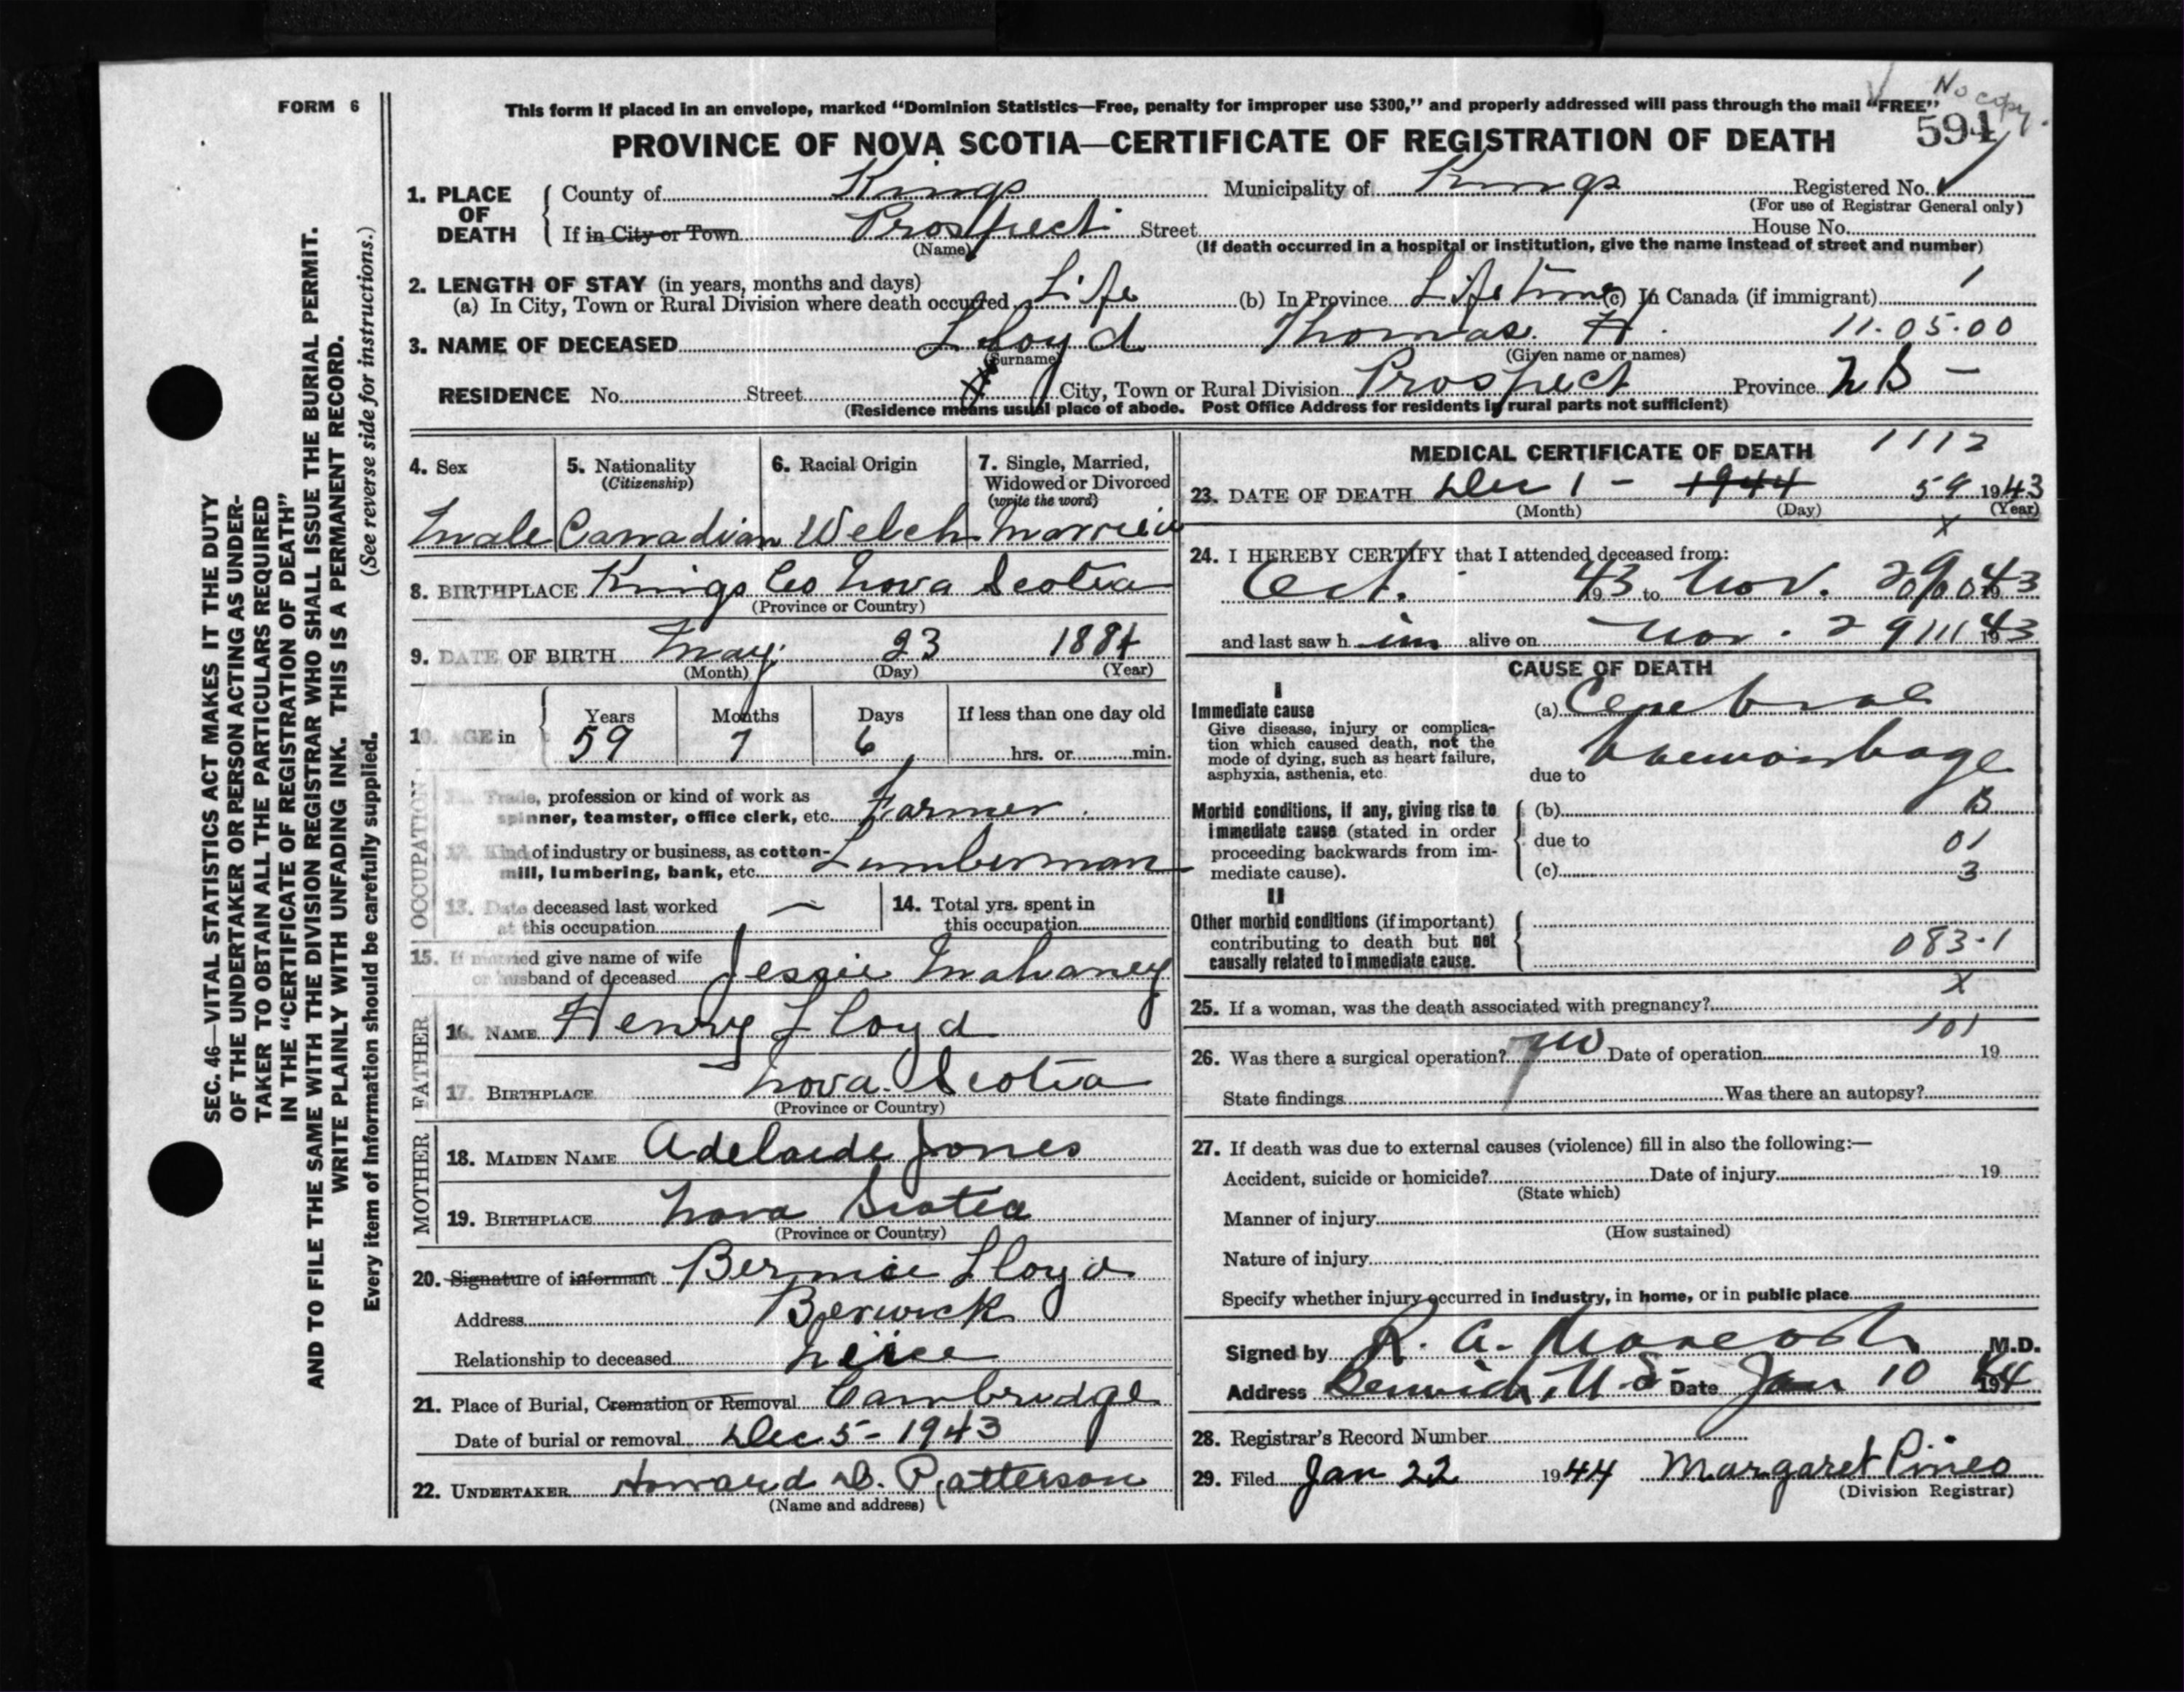 No copy.
FORM 6
This form if placed in an envelope, marked "Dominion Statistics—Free, penalty for improper use $300," and properly addressed will pass through the mail "FREE"
PROVINCE OF NOVA SCOTIA—CERTIFICATE OF REGISTRATION OF DEATH 594
1. PLACE OF DEATH
County of Kings Municipality of Kings Registered No.
(For use of Registrar General only)
If in City or Town Prospect Street House No.
(Name) (If death occurred in a hospital or institution, give the name instead of street and number)
2. LENGTH OF STAY (in years, months and days)
(a) In City, Town or Rural Division where death occurred Life (b) In Province Life time (c) In Canada (if immigrant)
3. NAME OF DECEASED Lloyd Thomas. H. 11.05.00
(Surname) (Given name or names)
RESIDENCE No. Street City, Town or Rural Division Prospect Province N S -
(Residence means usual place of abode. Post Office Address for residents in rural parts not sufficient)
4. Sex
Male
5. Nationality
(Citizenship)
Canadian
6. Racial Origin
Welch
7. Single, Married, Widowed or Divorced
(write the word)
Married
8. BIRTHPLACE Kings Co Nova Scotia
(Province or Country)
9. DATE OF BIRTH May 23 1884
(Month) (Day) (Year)
10. AGE in
Years Months Days If less than one day old
59 7 6 hrs. or min.
OCCUPATION
11. Trade, profession or kind of work as
spinner, teamster, office clerk, etc. Farmer.
12. Kind of industry or business, as cotton-
mill, lumbering, bank, etc. Lumberman
13. Date deceased last worked
at this occupation —
14. Total yrs. spent in
this occupation
15. If married give name of wife
or husband of deceased Jessie Mahaney
FATHER
16. NAME Henry Lloyd
17. BIRTHPLACE Nova Scotia
(Province or Country)
MOTHER
18. MAIDEN NAME Adelaide Jones
19. BIRTHPLACE Nova Scotia
(Province or Country)
20. Signature of informant Bernice Lloyd
Address Berwick
Relationship to deceased Neice
21. Place of Burial, Cremation or Removal Cambridge
Date of burial or removal Dec 5 - 1943
22. UNDERTAKER Howard D. Patterson
(Name and address)
MEDICAL CERTIFICATE OF DEATH 1112
23. DATE OF DEATH Dec 1 - 1944 59 1943
(Month) (Day) (Year)
X
24. I HEREBY CERTIFY that I attended deceased from:
Oct. 1943 to Nov. 29 1943
and last saw him alive on Nov. 29 1943
CAUSE OF DEATH
I
Immediate cause
Give disease, injury or complica-
tion which caused death, not the
mode of dying, such as heart failure,
asphyxia, asthenia, etc.
(a) Cerebral
haemorrhage
due to
Morbid conditions, if any, giving rise to
immediate cause (stated in order
proceeding backwards from im-
mediate cause).
(b) B
due to 01
(c) 3
II
Other morbid conditions (if important)
contributing to death but not
causally related to immediate cause.
083-1
X
25. If a woman, was the death associated with pregnancy?
101
26. Was there a surgical operation? no Date of operation 19
State findings Was there an autopsy?
27. If death was due to external causes (violence) fill in also the following:—
Accident, suicide or homicide? Date of injury 19
(State which)
Manner of injury
(How sustained)
Nature of injury
Specify whether injury occurred in industry, in home, or in public place
Signed by R. A. M.D.
Address Berwick, N.S. Date Jan 10 1944
28. Registrar's Record Number
29. Filed Jan 22 1944 Margaret Pineo
(Division Registrar)
SEC. 46—VITAL STATISTICS ACT MAKES IT THE DUTY
OF THE UNDERTAKER OR PERSON ACTING AS UNDER-
TAKER TO OBTAIN ALL THE PARTICULARS REQUIRED
IN THE "CERTIFICATE OF REGISTRATION OF DEATH"
AND TO FILE THE SAME WITH THE DIVISION REGISTRAR WHO SHALL ISSUE THE BURIAL PERMIT.
WRITE PLAINLY WITH UNFADING INK. THIS IS A PERMANENT RECORD.
Every item of information should be carefully supplied. (See reverse side for instructions.)